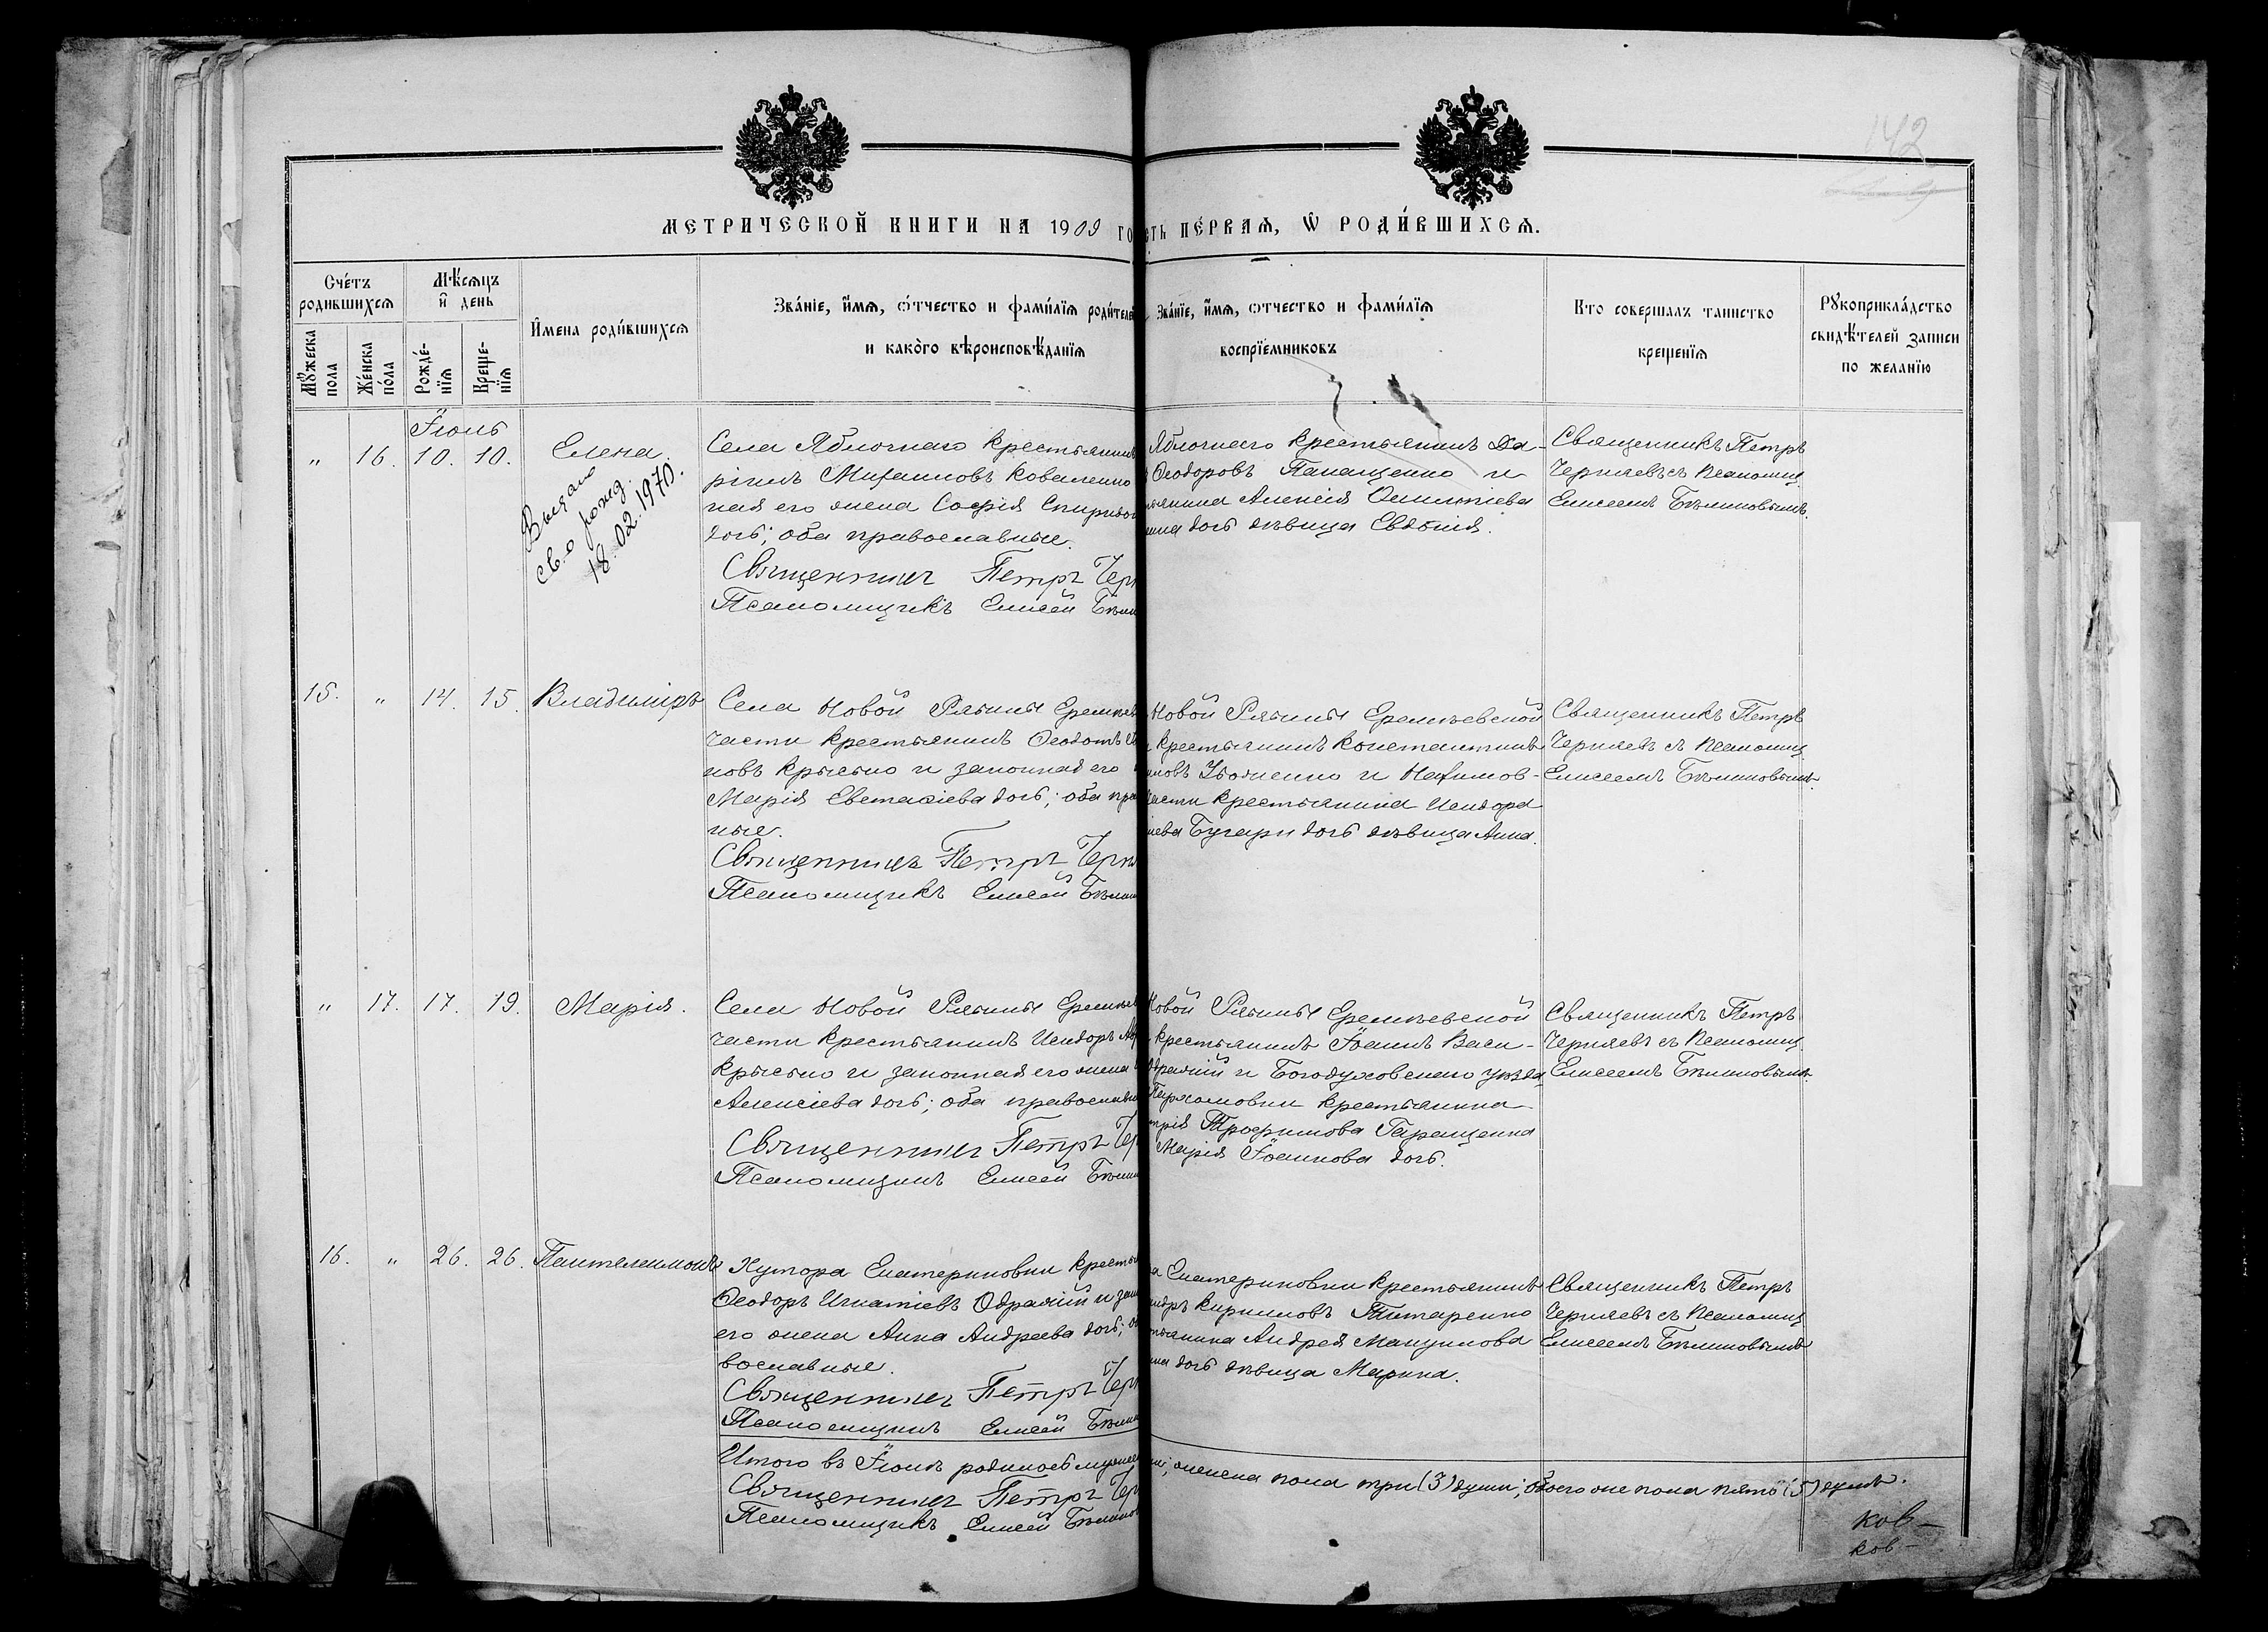 142
МЕТРИЧЕСКОЙ КНИГИ НА 1909 ГО
СТЬ ПЕ́РВАЯ, Ѡ҆ РОДИ́ВШИХСЯ.
Счéтъ родившихся
Мѣ́сяцъ и҆ день
Мꙋ́жеска пола
Же́нска по́ла
Рожде́-нїя
Креще-нїя
И҆мена роди́вшихся
Зва́нїе, и҆́мя, ѻ҆́тчество и фами́лїя роди́телей
и како́го вѣроисповѣ́данїя
Зва́нїе, и҆́мя, ѻтчество и фами́лїя
воспрїе́мниковъ
Кто совершалъ таинство
креще́нїя
Рꙋкоприкла́дство
свидѣ́телей записи
по желанїю
Іюнь
" 16. 10. 10. Елена.
Выдано
св.о рожд.
18.02.1970.
Села Яблочнаго крестьянинъ
Михаиловъ Коваленко
ная его жена Софія Спиридо
дочь; оба православные.
Священникъ Петръ Чер
Псаломщикъ Елисей Бѣли
Яблочнаго крестьянинъ
Ѳеодоровъ Панащенко и
янина Алексія
дочь дѣвица Евдокія.
Священникъ Петръ
Черняевъ съ псаломщ.
Елисеемъ Бѣликовымъ.
15. " 14. 15. Владиміръ
Села Новой Рябины Еремѣев
части крестьянинъ Ѳеодотъ
новъ Крысько и законная его
Марія Евстаѳіева дочь; оба пра
ные.
Священникъ Петръ Черн
Псаломщикъ Елисей Бѣлик
Новой Рябины Еремѣевской
крестьянинъ Константинъ
новъ и
части крестьянина Исидора
Бугари дочь дѣвица Анна.
Священникъ Петръ
Черняевъ съ псаломщ.
Елисеемъ Бѣликовымъ.
" 17. 17. 19. Марія.
Села Новой Рябины Еремѣев
части крестьянинъ Исидоръ
Крысько и законная его жена
Алексіева дочь; оба православн
Священникъ Петръ Чер
Псаломщикъ Елисей Бѣли
Новой Рябины Еремѣевской
крестьянинъ Іоаннъ Васи-
и Богодуховскаго уѣзда
Пархомовки крестьянина
трія Трофимова Геращенка
Марія Іоаннова дочь.
Священникъ Петръ
Черняевъ съ псаломщ.
Елисеемъ Бѣликовымъ.
16. " 26. 26. Пантелеимонъ
Хутора Екатериновки кресть
Ѳеодоръ Игнатіевъ Одражій и зак
его жена Анна Андреева дочь; об
вославные.
Священникъ Петръ Чер
Псаломщикъ Елисей Бѣли
а Екатериновки крестьянинъ
андръ Кирилловъ Титаренко
тьянина Андрея
дочь дѣвица Марина.
Священникъ Петръ
Черняевъ съ псаломщ.
Елисеемъ Бѣликовымъ
Итого въ Іюнѣ родилось мужес
женска пола три (3) души; обоего же пола пять (5) душъ.
Священникъ Петръ Чер
Псаломщикъ Елисей Бѣлико
ков-
ков-